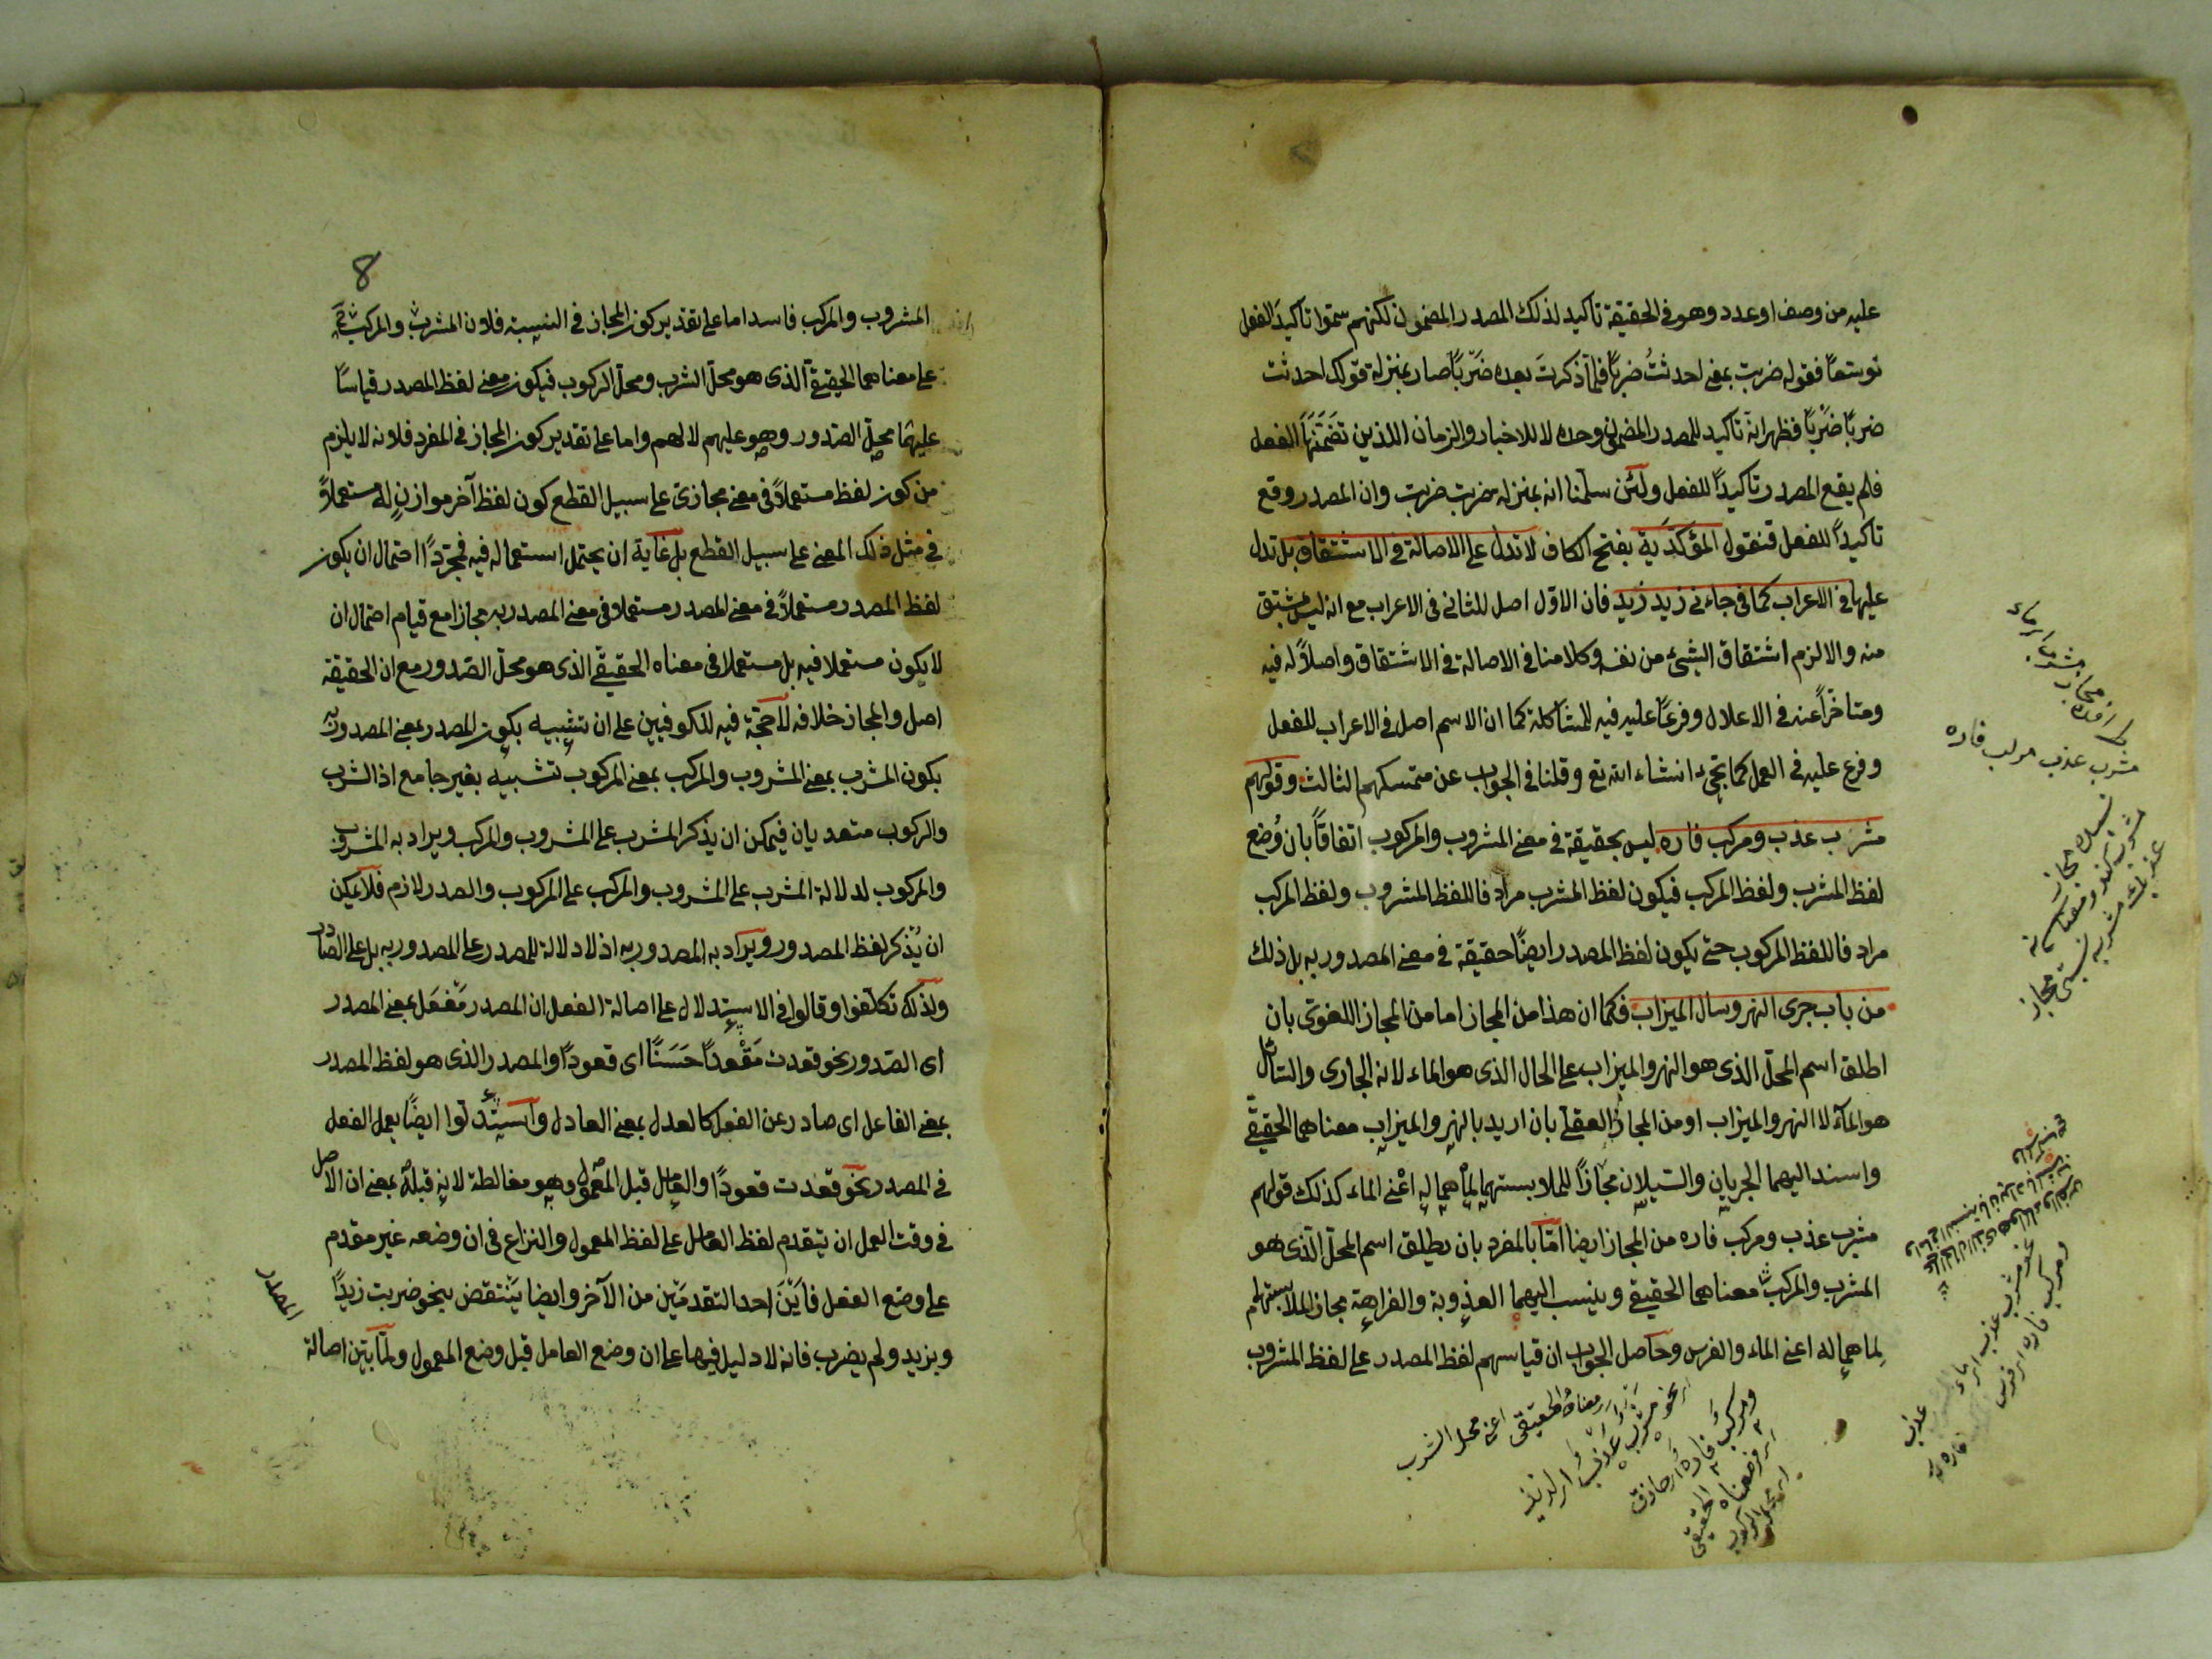 عليه من وصف او عدد وهو في الحقيقة تاكيد لذلك المصدر المضمون لكنهم سموا تاكيد الفعل
توسعا فقوله ضربت بمعنى احدثتُ ضرباً فلما ذكرتَ بعده ضَرْباً صار بمنزلة قولك احدثت
ضرباً ضَرْباً فظهر انه تاكيد للمصدر المضمون وحده لا للاخبار والزمان اللذين تضمنها الفعل
فلم يقع المصدر تاكيداً للفعل ولئن سلمنا انه بمنزلة ضربت ضربت وان المصدر وقع
تاكيداً للفعل فنقول المؤكَّدية بفتح الكاف لا تدل على الاصالة في الاشتقاق بل تدل
عليها في الاعراب كما في جاءني زيد زيد فان الاوّل اصل للثاني في الاعراب مع انه ليس بمشتق
منه والا لزم اشتقاق الشيء من نفسه وكلامنا في الاصالة في الاشتقاق واصلاً له فيه
ومتاخراً عنه في الاعلال وفرعاً عليه فيه للمشاكلة كما ان الاسم اصل في الاعراب للفعل
وفرع عليه في العمل كما تجيء انشاء الله تع وقلنا في الجواب عن متمسكهم الثالث وقولهم
مشرب عذب ومركب فاره ليس بحقيقة في معنى المشروب والمركوب اتفاقاً بان وُضع
لفظ المشرب ولفظ المركب فيكون لفظ المشرب مرادفا للفظ المشروب ولفظ المركب
مرادفا للفظ المركوب حتى يكون لفظ المصدر ايضاً حقيقة في معنى المصدور به بل ذلك
من باب جرى النهر وسال الميزاب فكما ان هذا من المجاز اما من المجاز اللغوي بان
اطلق اسم المحلّ الذي هو النهر والميزاب على الحال الذي هو الماء لانه الجاري والسائل
هو الماء لا النهر والميزاب او من المجاز العقلي بان اريد بالنهر والميزاب معناهما الحقيقي
واسند اليهما الجريان والسيلان مجازاً للملابستهما لما هما له اعني الماء كذلك قولهم
مشرب عذب ومركب فاره من المجاز ايضا امّا بالمفرد بان يطلق اسم المحلّ الذي هو
المشرب والمركب معناهما الحقيقي وينسب اليهما العذوبة والفراهة مجاز الملابستهما
لِما هما له اعني الماء والفرس وحاصل الجواب ان قياسهم لفظ المصدر على لفظ المشروب
مشرب عذب مركب فاره
معناه الحقيقي اعني محل الشرب
ومركب فاره
8
المشروب والمركب فاسد اما على تقدير كون المجاز في النسبة فلان المشرب والمركب
على معناهما الحقيقي الذي هو محلّ الشرب ومحلّ الركوب فيكون معنى لفظ المصدر قياسًا
عليهما محلّ الصّدور وهو عليهم لا لهم واما على تقدير كون المجاز في المفرد فلانه لا يلزم
من كون لفظ مستعملاً في معنى مجازي على سبيل القطع كون لفظ آخر موازنٍ له مستعملاً
في مثل ذلك المعنى على سبيل القطع بل غاية ان يحتمل استعماله فيه فمجرّد احتمال ان يكون
لفظ المصدر مستعملاً في معنى المصدر مستعملا في معنى المصدر به مجازا مع قيام احتمال ان
لا يكون مستعملا فيه بل مستعملا في معناه الحقيقي الذي هو محلّ الصّدور مع ان الحقيقة
اصل والمجاز خلافه لا حجّة فيه للكوفيين على ان تشبيه بكون المصدر بمعنى المصدور به
بكون المشرب بمعنى المشروب والمركب بمعنى المركوب تشبيه بغير جامع اذ الشرب
والركوب متعديان فيمكن ان يذكر المشرب على المشروب والمركب ويراد به المشروب
والمركوب لدلالة المشرب على المشروب والمركب على المركوب والصدر لازم فلا يمكن
ان يُذكر لفظ المصدور ويراد به المصدور به اذ لا دلالة للمصدر على المصدور به بل على الصّادر
ولذلك تكلفوا وقالوا في الاستدلال على اصالة الفعل ان المصدر مَفْعَل بمعنى المصدر
اى الصّدور نحو قعدت مَقْعداً حَسَنًا اى قعودًا والمصدر الذي هو لفظ المصدر
بمعنى الفاعل اى صادر عن الفعل كالعدل بمعنى العادل واستدلّوا ايضًا بعمل الفعل
في المصدر نحو قعدت قعودًا والعامل قبل المعمول وهو مغالطة لانه قبله بمعنى ان الاصل
في وقت العمل ان يتقدم لفظ العامل على لفظ المعمول والنزاع في ان وضعه غير مقدم
على وضع الفعل فاَيْنَ احد التقدمَين من الآخر وايضا يَنْتقض بنحو ضربت زيدًا
وبزيد ولم يضرب فانه لا دليل فيها على ان وضع العامل قبل وضع المعمول ولمّا بيّن اصالة
المصدر